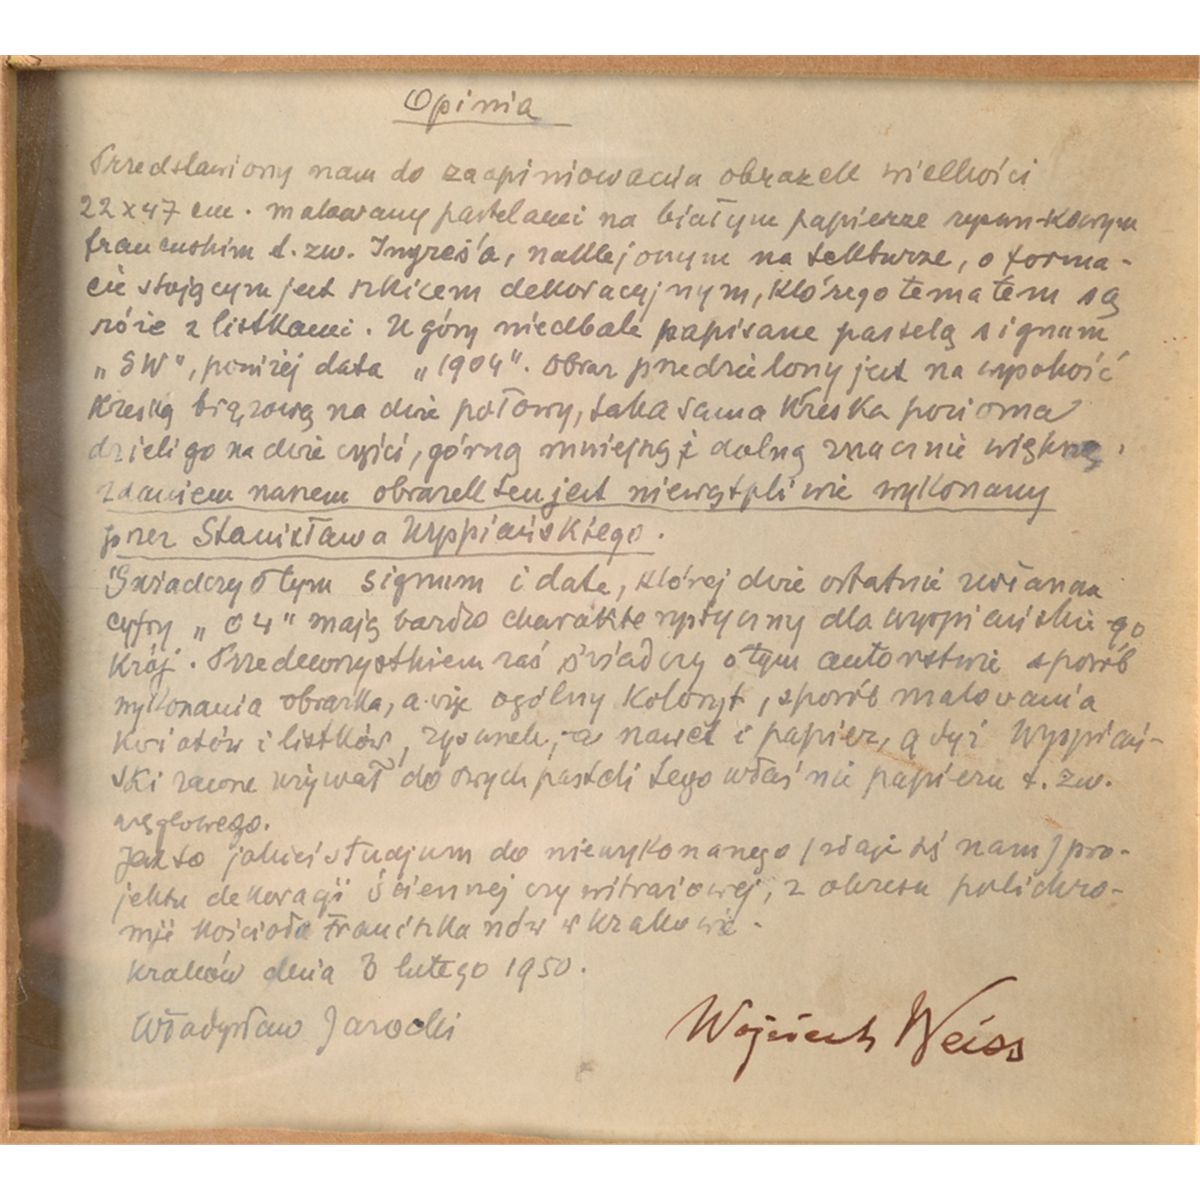 Opinia
Przedstawiony nam do zaopiniowania obrazek wielkości
22 x 47 cm. malowany pastelami na białym papierze rysunkowym
francuskim t. zw. Ingres'a, naklejonym na tekturze, o forma-
cie stojącym jest szkicem dekoracyjnym, którego tematem są
róże z listkami. U góry niedbale napisane pastelą signum
„SW", poniżej data „1904". Obraz przedzielony jest na wysokość
kreską brązową na dwie połowy, taka sama kreska pozioma
dzieli go na dwie części, górną mniejszą i dolną znacznie większą.
Zdaniem naszem obrazek ten jest niewątpliwie wykonany
przez Stanisława Wyspiańskiego.
Świadczy o tym signum i data, której dwie ostatnie
cyfry „04" mają bardzo charakterystyczny dla Wyspiańskiego
krój. Przedewszystkiem zaś świadczy o tym autorstwie sposób
wykonania obrazka, a więc ogólny koloryt, sposób malowania
kwiatów i listków, rysunek, a nawet i papier, gdyż Wyspiań-
ski używał do swych pasteli tego właśnie papieru t. zw.
węglowego.
Jest to jakieś studjum do niewykonanego (zdaje się nam) pro-
jektu dekoracji ściennej czy witrażowej, z okresu polichro-
mji kościoła Franciszkanów w Krakowie.
Kraków dnia 3 lutego 1950.
Władysław Jarocki
Wojciech Weiss